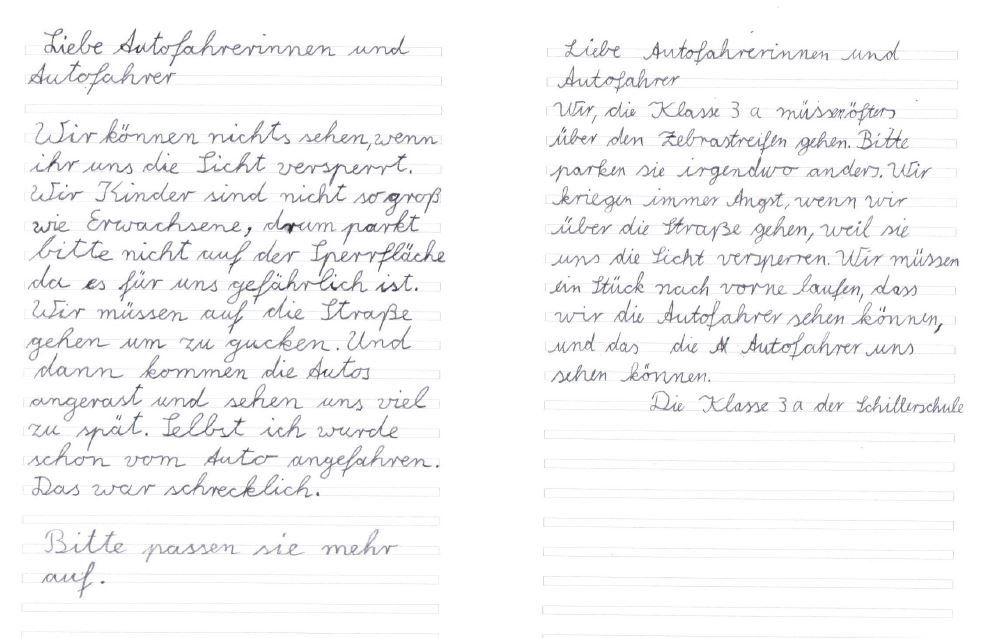 Liebe Autofahrerinnen und
Autofahrer
Wir können nichts sehen, wenn
ihr uns die Sicht versperrt.
Wir Kinder sind nicht so groß
wie Erwachsene, drum parkt
bitte nicht auf der Sperrfläche
da es für uns gefährlich ist.
Wir müssen auf die Straße
gehen um zu gucken. Und
dann kommen die Autos
angerast und sehen uns viel
zu spät. Selbst ich wurde
schon vom Auto angefahren.
Das war schrecklich.
Bitte passen sie mehr
auf.
Liebe Autofahrerinnen und
Autofahrer
Wir, die Klasse 3 a müssen öfters
über den Zebrastreifen gehen. Bitte
parken sie irgendwo anders. Wir
kriegen immer Angst, wenn wir
über die Straße gehen, weil sie
uns die Sicht versperren. Wir müssen
ein Stück nach vorne laufen, dass
wir die Autofahrer sehen können,
und das die Autofahrer uns
sehen können.
Die Klasse 3 a der Schillerschule